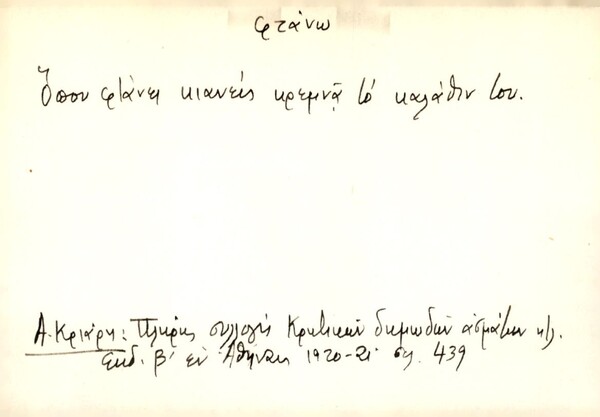 φτάνω
Ὅπου φτάνει κιανείς κρεμνᾷ τό καλάθιν του.
Α. Κριάρη: Πλήρης συλλογή Κρητικῶν δημωδῶν ἀσμάτων κτλ.
Εκδ. β' εν Ἀθήναις 1920-21 σελ. 439